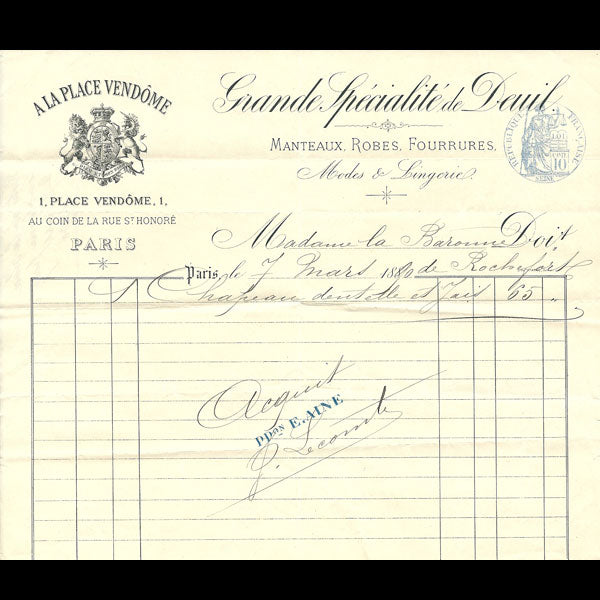 A LA PLACE VENDÔME
1, PLACE VENDÔME, 1,
AU COIN DE LA RUE ST HONORÉ
PARIS
Grande Spécialité de Deuil.
MANTEAUX, ROBES, FOURRURES,
Modes & Lingerie.
RÉPUBLIQUE FRANÇAISE
10
SEINE
Madame la Baronne Doit
Paris, le 7 Mars 1880 de Rochefort
1 Chapeau dentelle et Jais 65 "
Acquit
PPON E. AINE
Lecomte